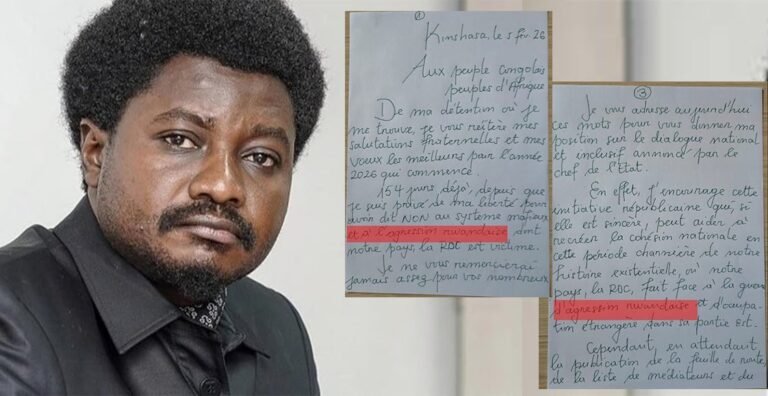 1
Kinshasa, le 5 fév. 26
Aux peuple Congolais
peuples d'Afrique
De ma détention où je
me trouve, je vous réitère mes
salutations fraternelles et mes
vœux les meilleurs pour l'année
2026 qui commence.
154 jours, déjà, depuis que
je suis privé de ma liberté pour
avoir dit NON au système mafieux
et à l'agression rwandaise dont
notre pays, la RDC est victime.
Je ne vous remercierai
jamais assez pour vos nombreux
3
Je vous adresse aujourd'hui
ces mots pour vous donner ma
position sur le dialogue national
et inclusif annoncé par le
chef de l'État.
En effet, j'encourage cette
initiative républicaine qui, si
elle est sincère, peut aider à
recréer la cohésion nationale en
cette période charnière de notre
histoire existentielle, où notre
pays, la RDC, fait face à la guerre
d'agression rwandaise et d'occupa-
tion étrangère dans sa partie Est.
Cependant, en attendant
la publication de la feuille de route,
de la liste de médiateurs et du